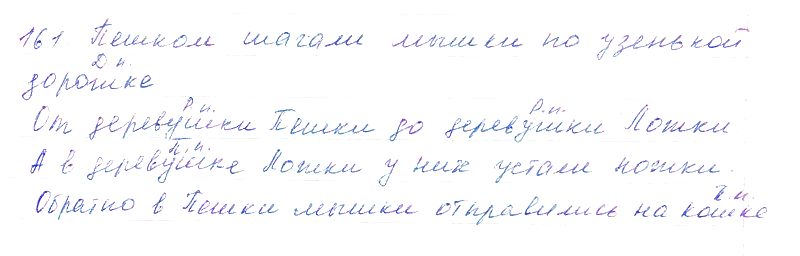 161 Пешком шагали мышки по узенькой
Д п.
дорожке
Р п. Р. п.
От деревушки Пешки до деревушки Ложки
П. п.
А в деревушке Ложки у них устали ножки.
П. п.
Обратно в Пешки мышки отправились на кошке